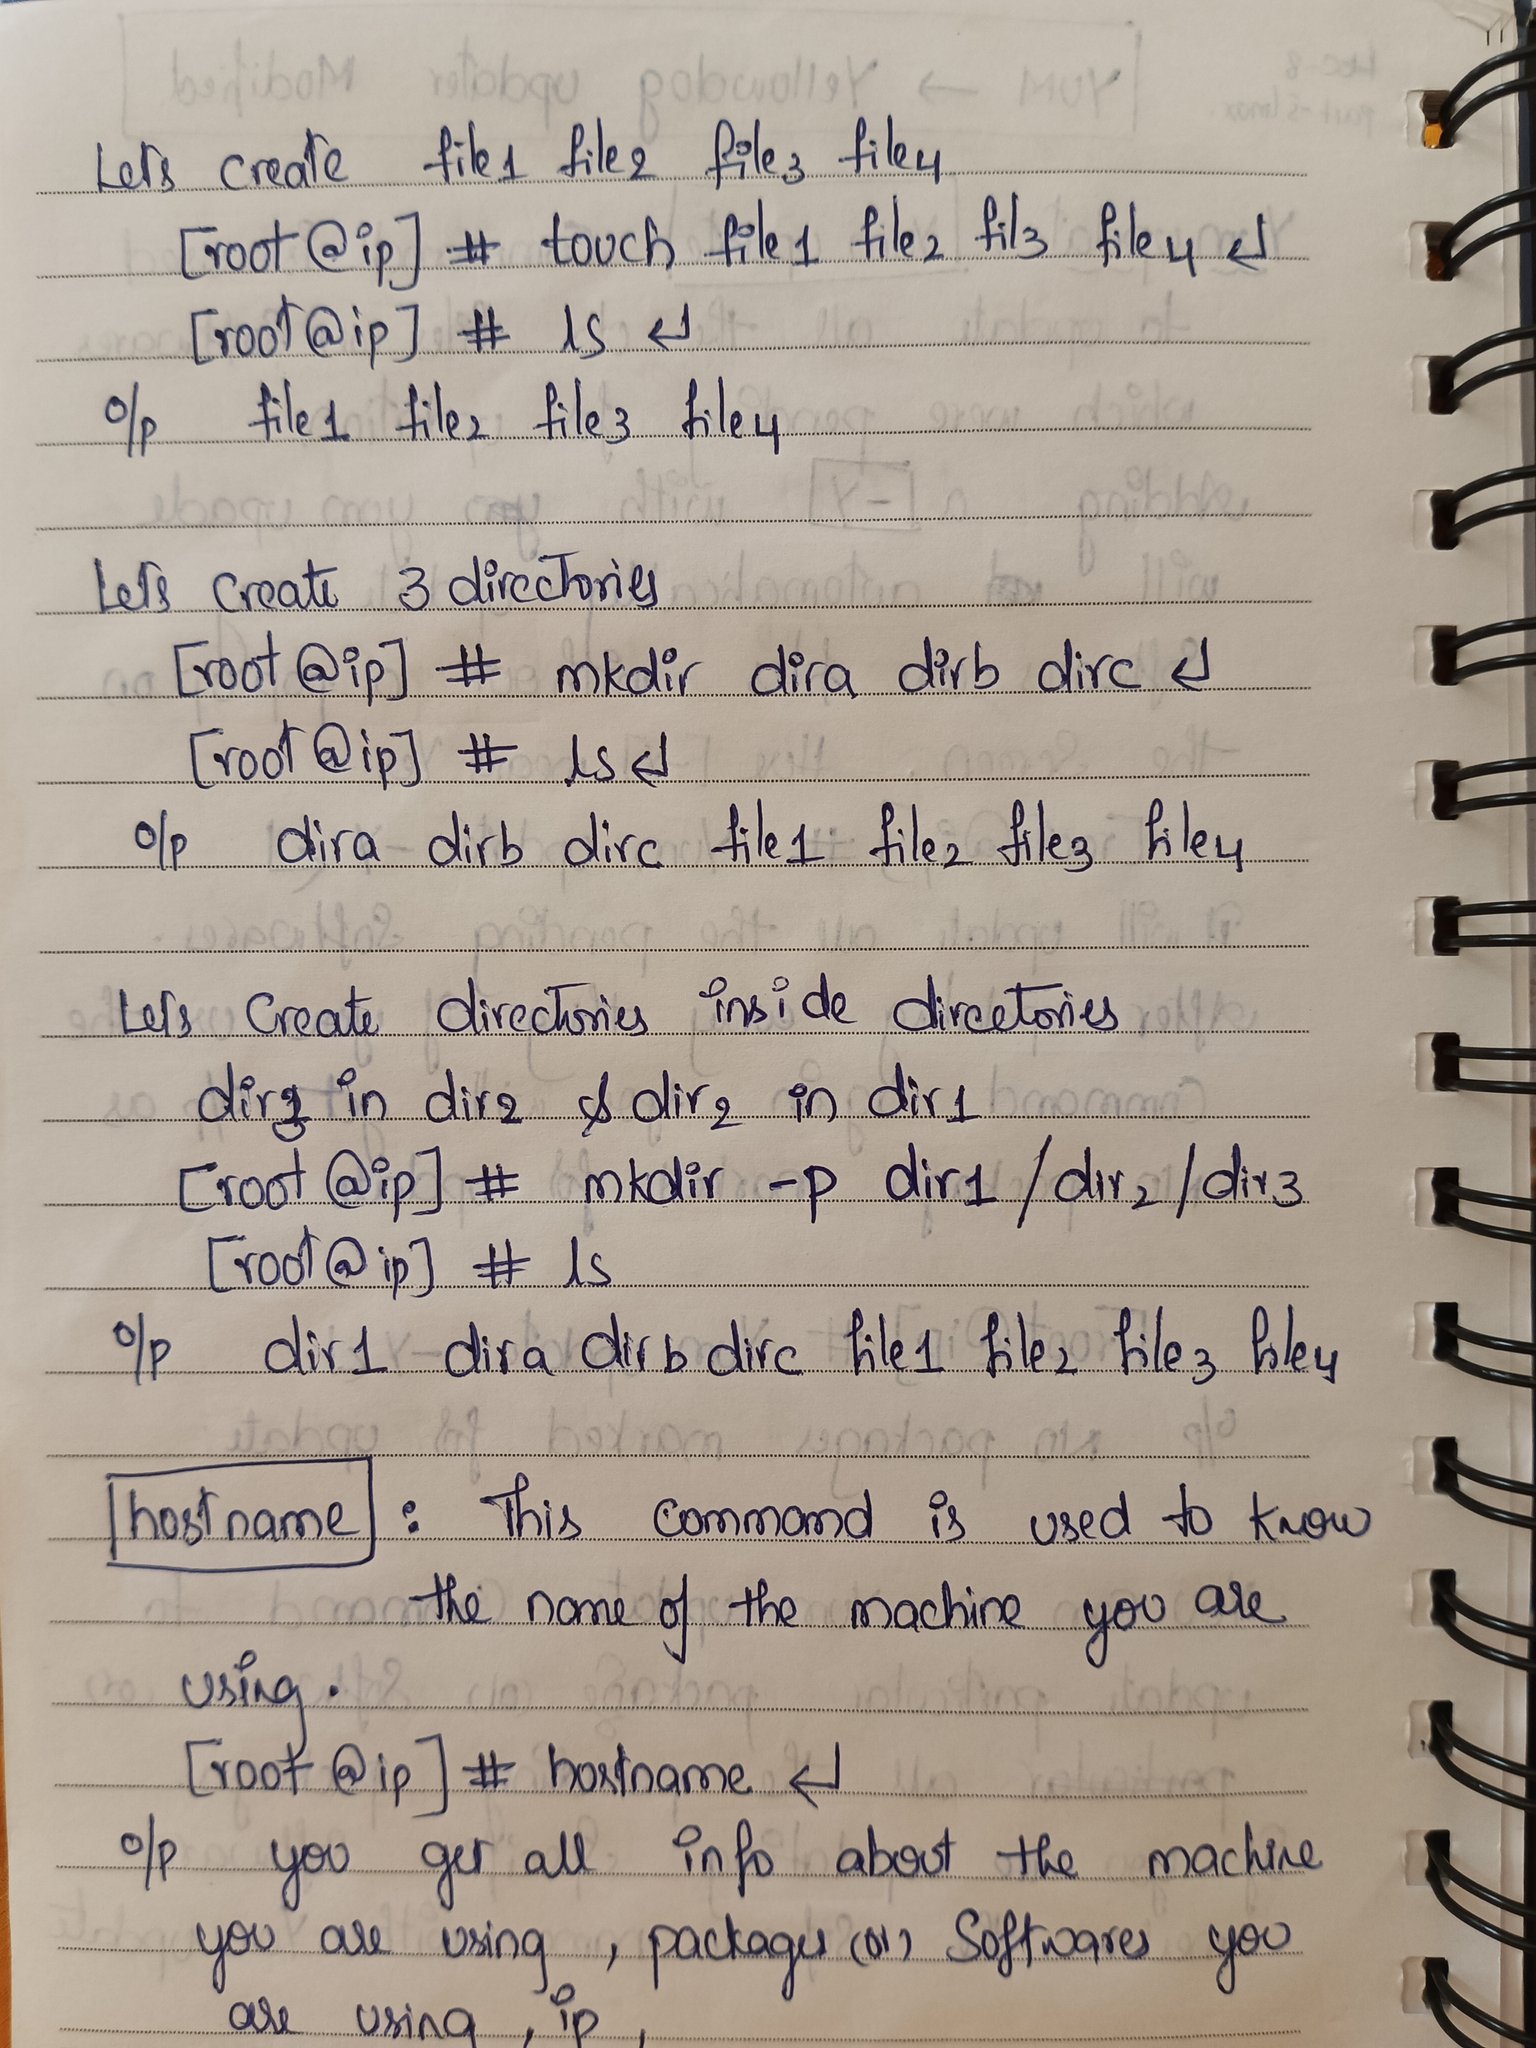 Let's create file1 file2 file3 file4
[root@ip] # touch file1 file2 fil3 file4 ↵
[root@ip] # ls ↵
o/p file1 file2 file3 file4
Let's create 3 directories
[root@ip] # mkdir dira dirb dirc ↵
[root@ip] # ls ↵
o/p dira dirb dirc file1 file2 file3 file4
Let's Create directories inside directories
dir3 in dir2 & dir2 in dir1
[root@ip] # mkdir -p dir1/dir2/dir3
[root@ip] # ls
o/p dir1 dira dirb dirc file1 file2 file3 file4
hostname : This command is used to know
the name of the machine you are
using.
[root@ip] # hostname ↵
o/p you get all info about the machine
you are using, packages (or) Softwares you
are using, ip,